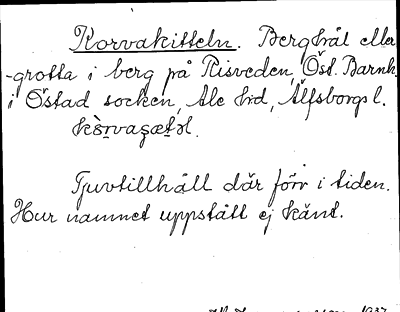 Korvakitteln. Berghål eller
-grotta i berg på Risveden, Öst. Barnk.
i Östad socken, Ale hd, Älfsborgs l.
Tjuvtillhåll där förr i tiden.
Hur namnet uppstått ej känt.
1937